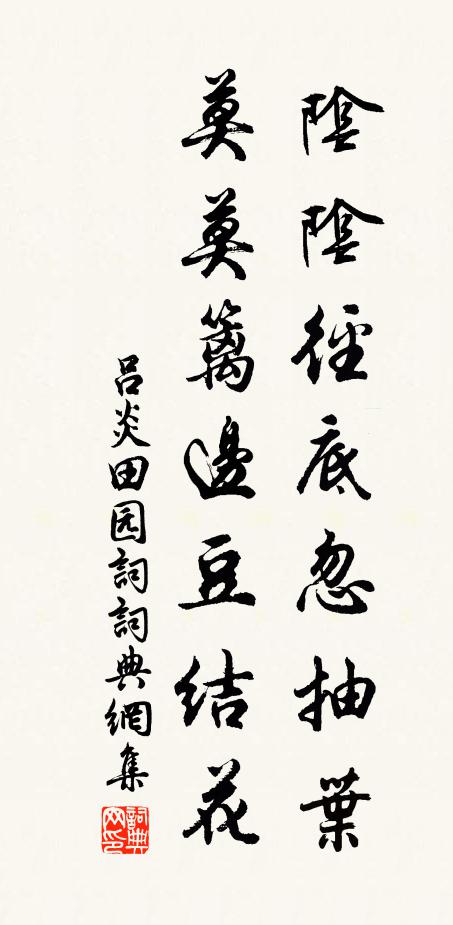 陰陰徑底忽抽葉
莫莫籬邊豆結花
呂炎田园詞詞典網集
詞典网印